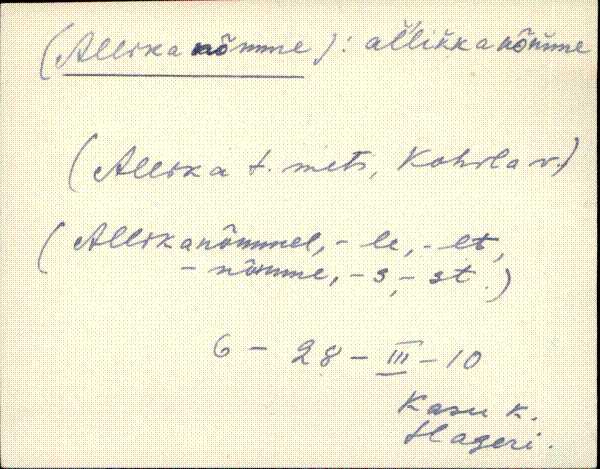 (Allikanõmme): al̆likkanõm̆me
(Allika t. mets, Kohila v.)
(Allikanõmmel, - le, - lt,
- nõmme, - s, - st.)
6 - 28 - III - 10
Kasu k.
Hageri.